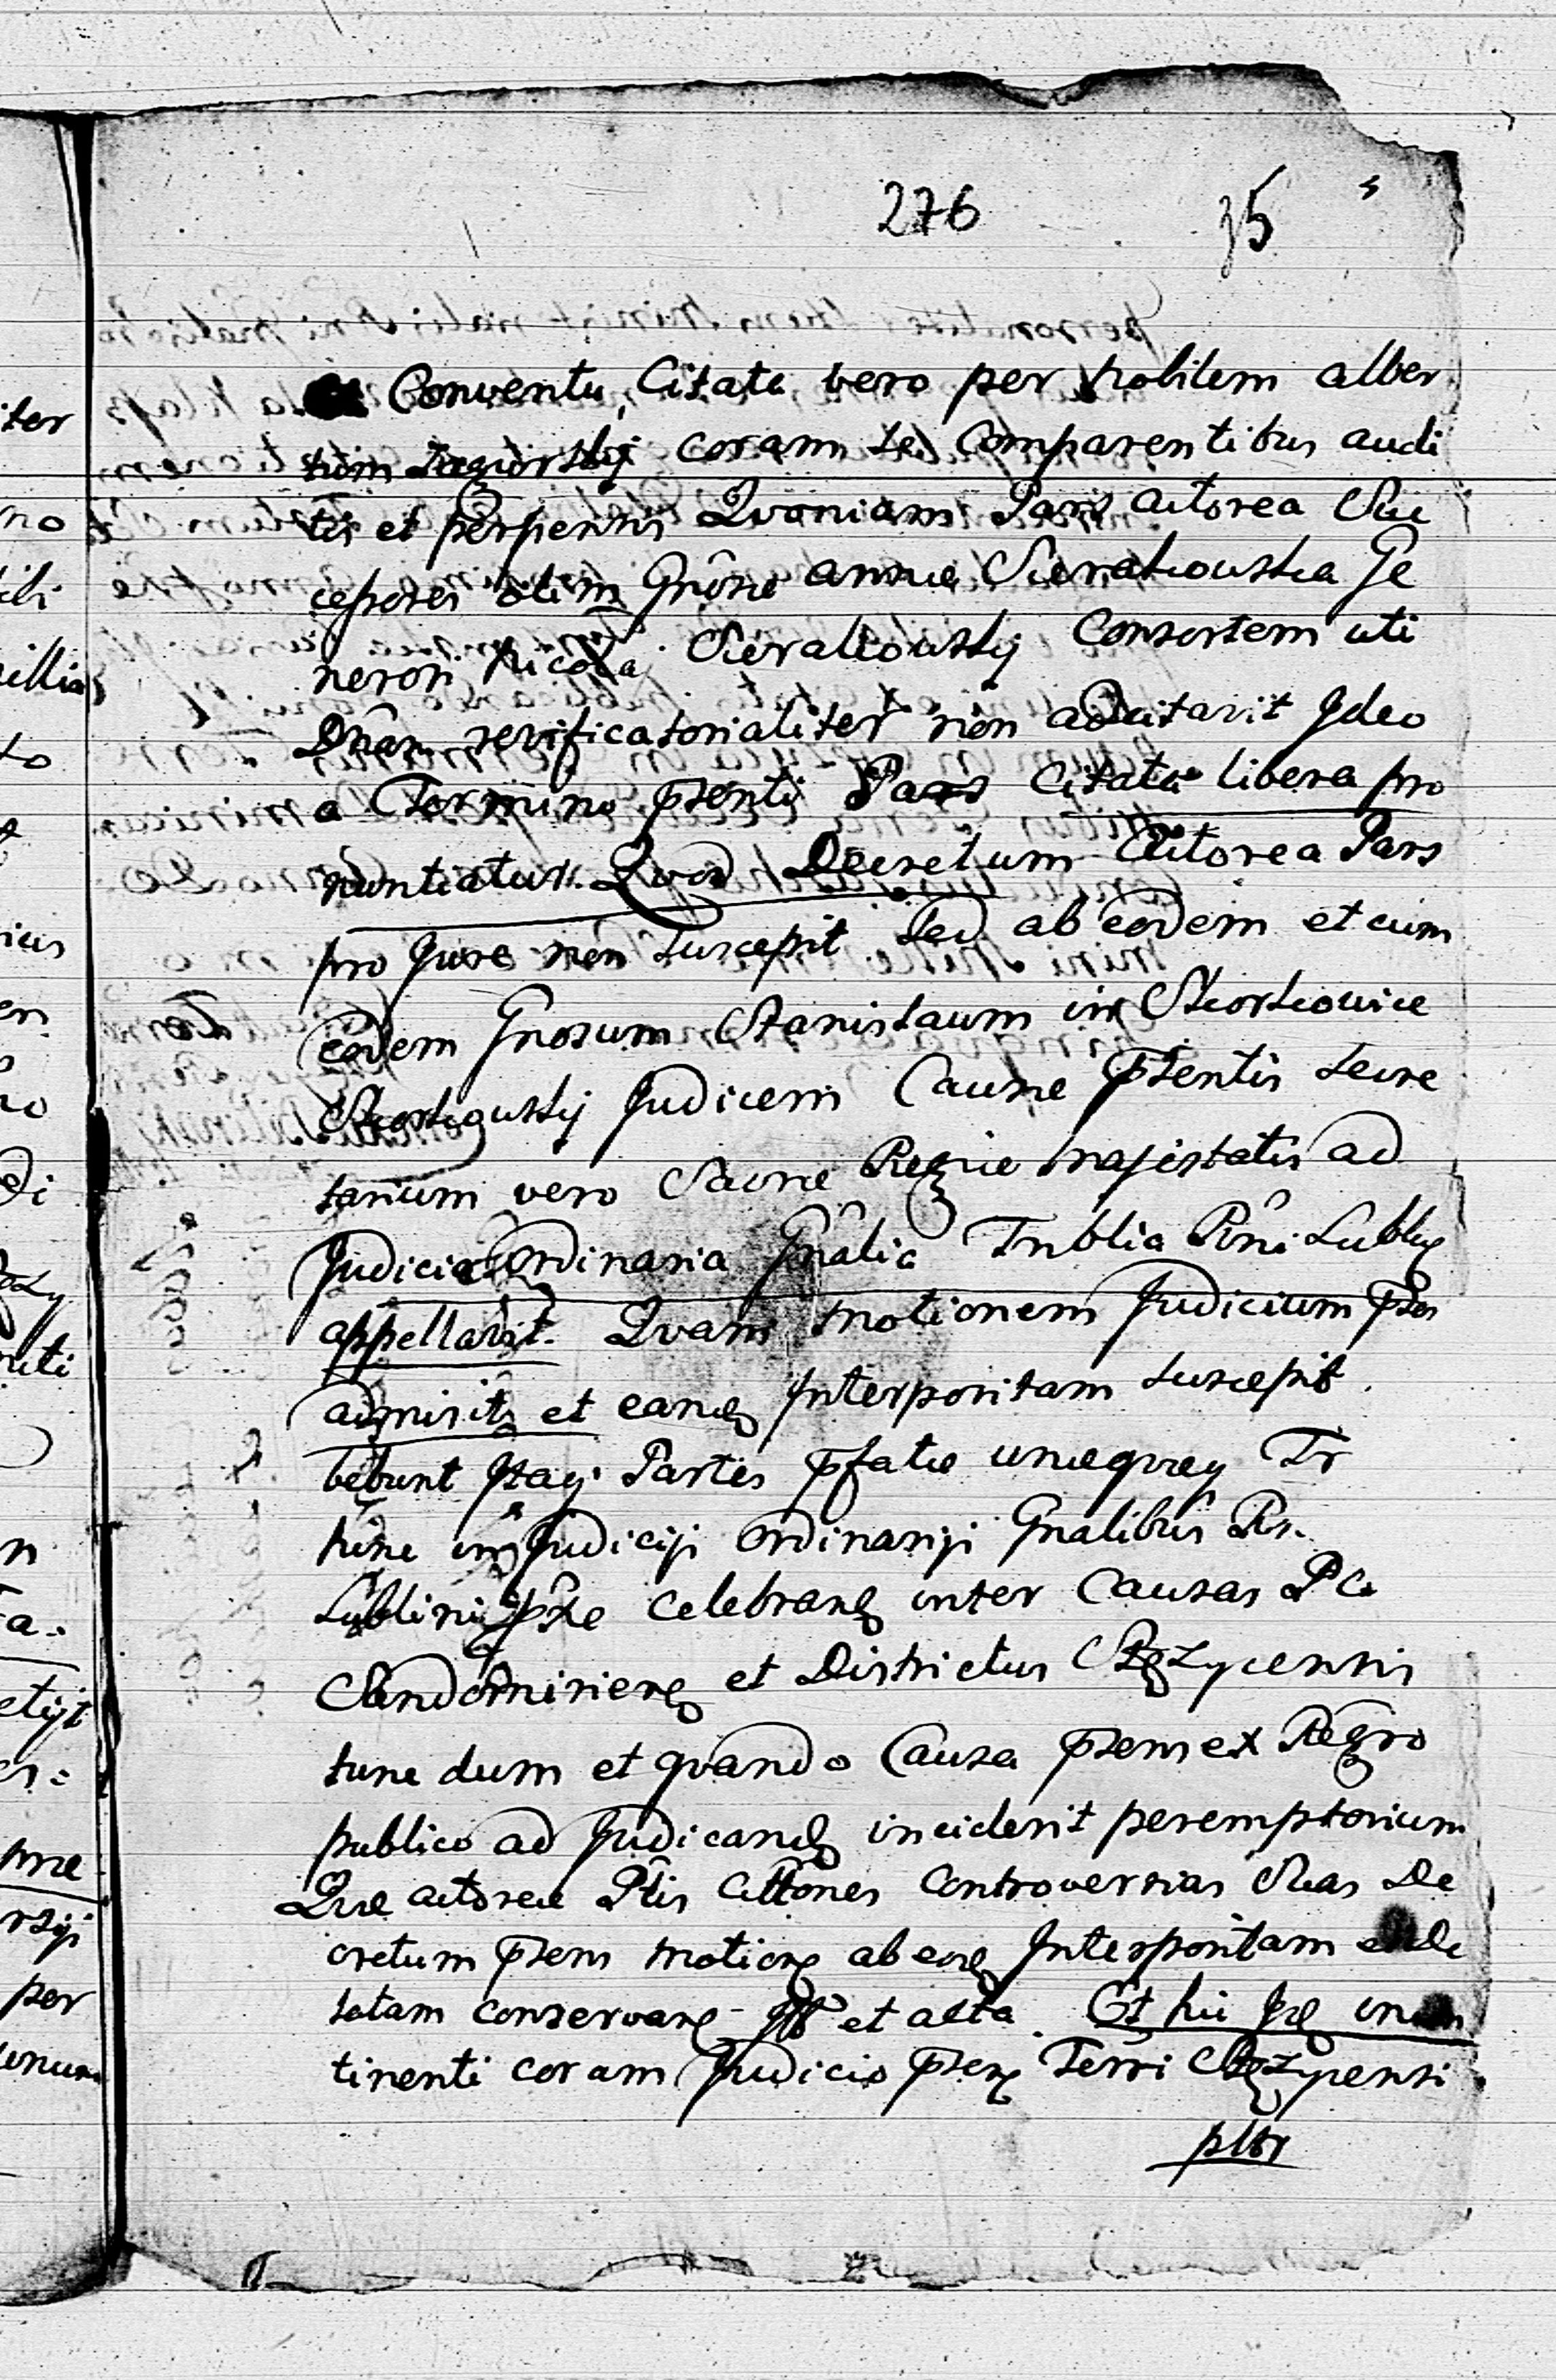 276 35
Conventu, Citata vero per Nobilem alber
tum Zagiorskij coram se Comparentibus audi
tis et perpensis Quoniam Pars actorea Suc
cessores olim Gnōse annæ Sierakouska Ge
nerosi Nicolai Sierakouskij Consortem uti
Dnām revificatorialiter non adcitavit Ideo
a Termino pñti Pars Citata libera pro
nuntiatur. Quod Decretum Actorea Pars
pro Jure non suscepit sed ab eodem et cum
eodem Gnosum Stanislaum in Skorkowice
Skorkouskij Judicem Causæ pñtis secre
tarium vero Sacræ Regiæ Majestatis ad
Judicia Ordinaria Gñalia Triblia Rñi Lubly
appellavit. Quam motionem Judicium pñs
admisit et eandē Interpositam suscepit.
bebunt Itaq. Partes pfatæ unæquæq Tr
hinc in Judicijs Ordinarijs Gnalibus Rn.
Lublini pñe Celebrandē inter Causas P
Sandomiriensē et Districtus Stężycensis
tunc dum et quando Causa pñsens ex Regro
publico ad Judicandē inciderit peremptorium
Quæ actoreæ Ptis Cttōnes Controversias Suas De
cretum pñsens motionē ab eodē Interpositam
latam conservarē et acta. Et hic In
tinenti coram Judicio pñsenē Terri Stężycensi
pltr
iter
no
ili
illia
to
ius
en
no
di
uti
n
a.
etijt
pme
rsiji
per
unum